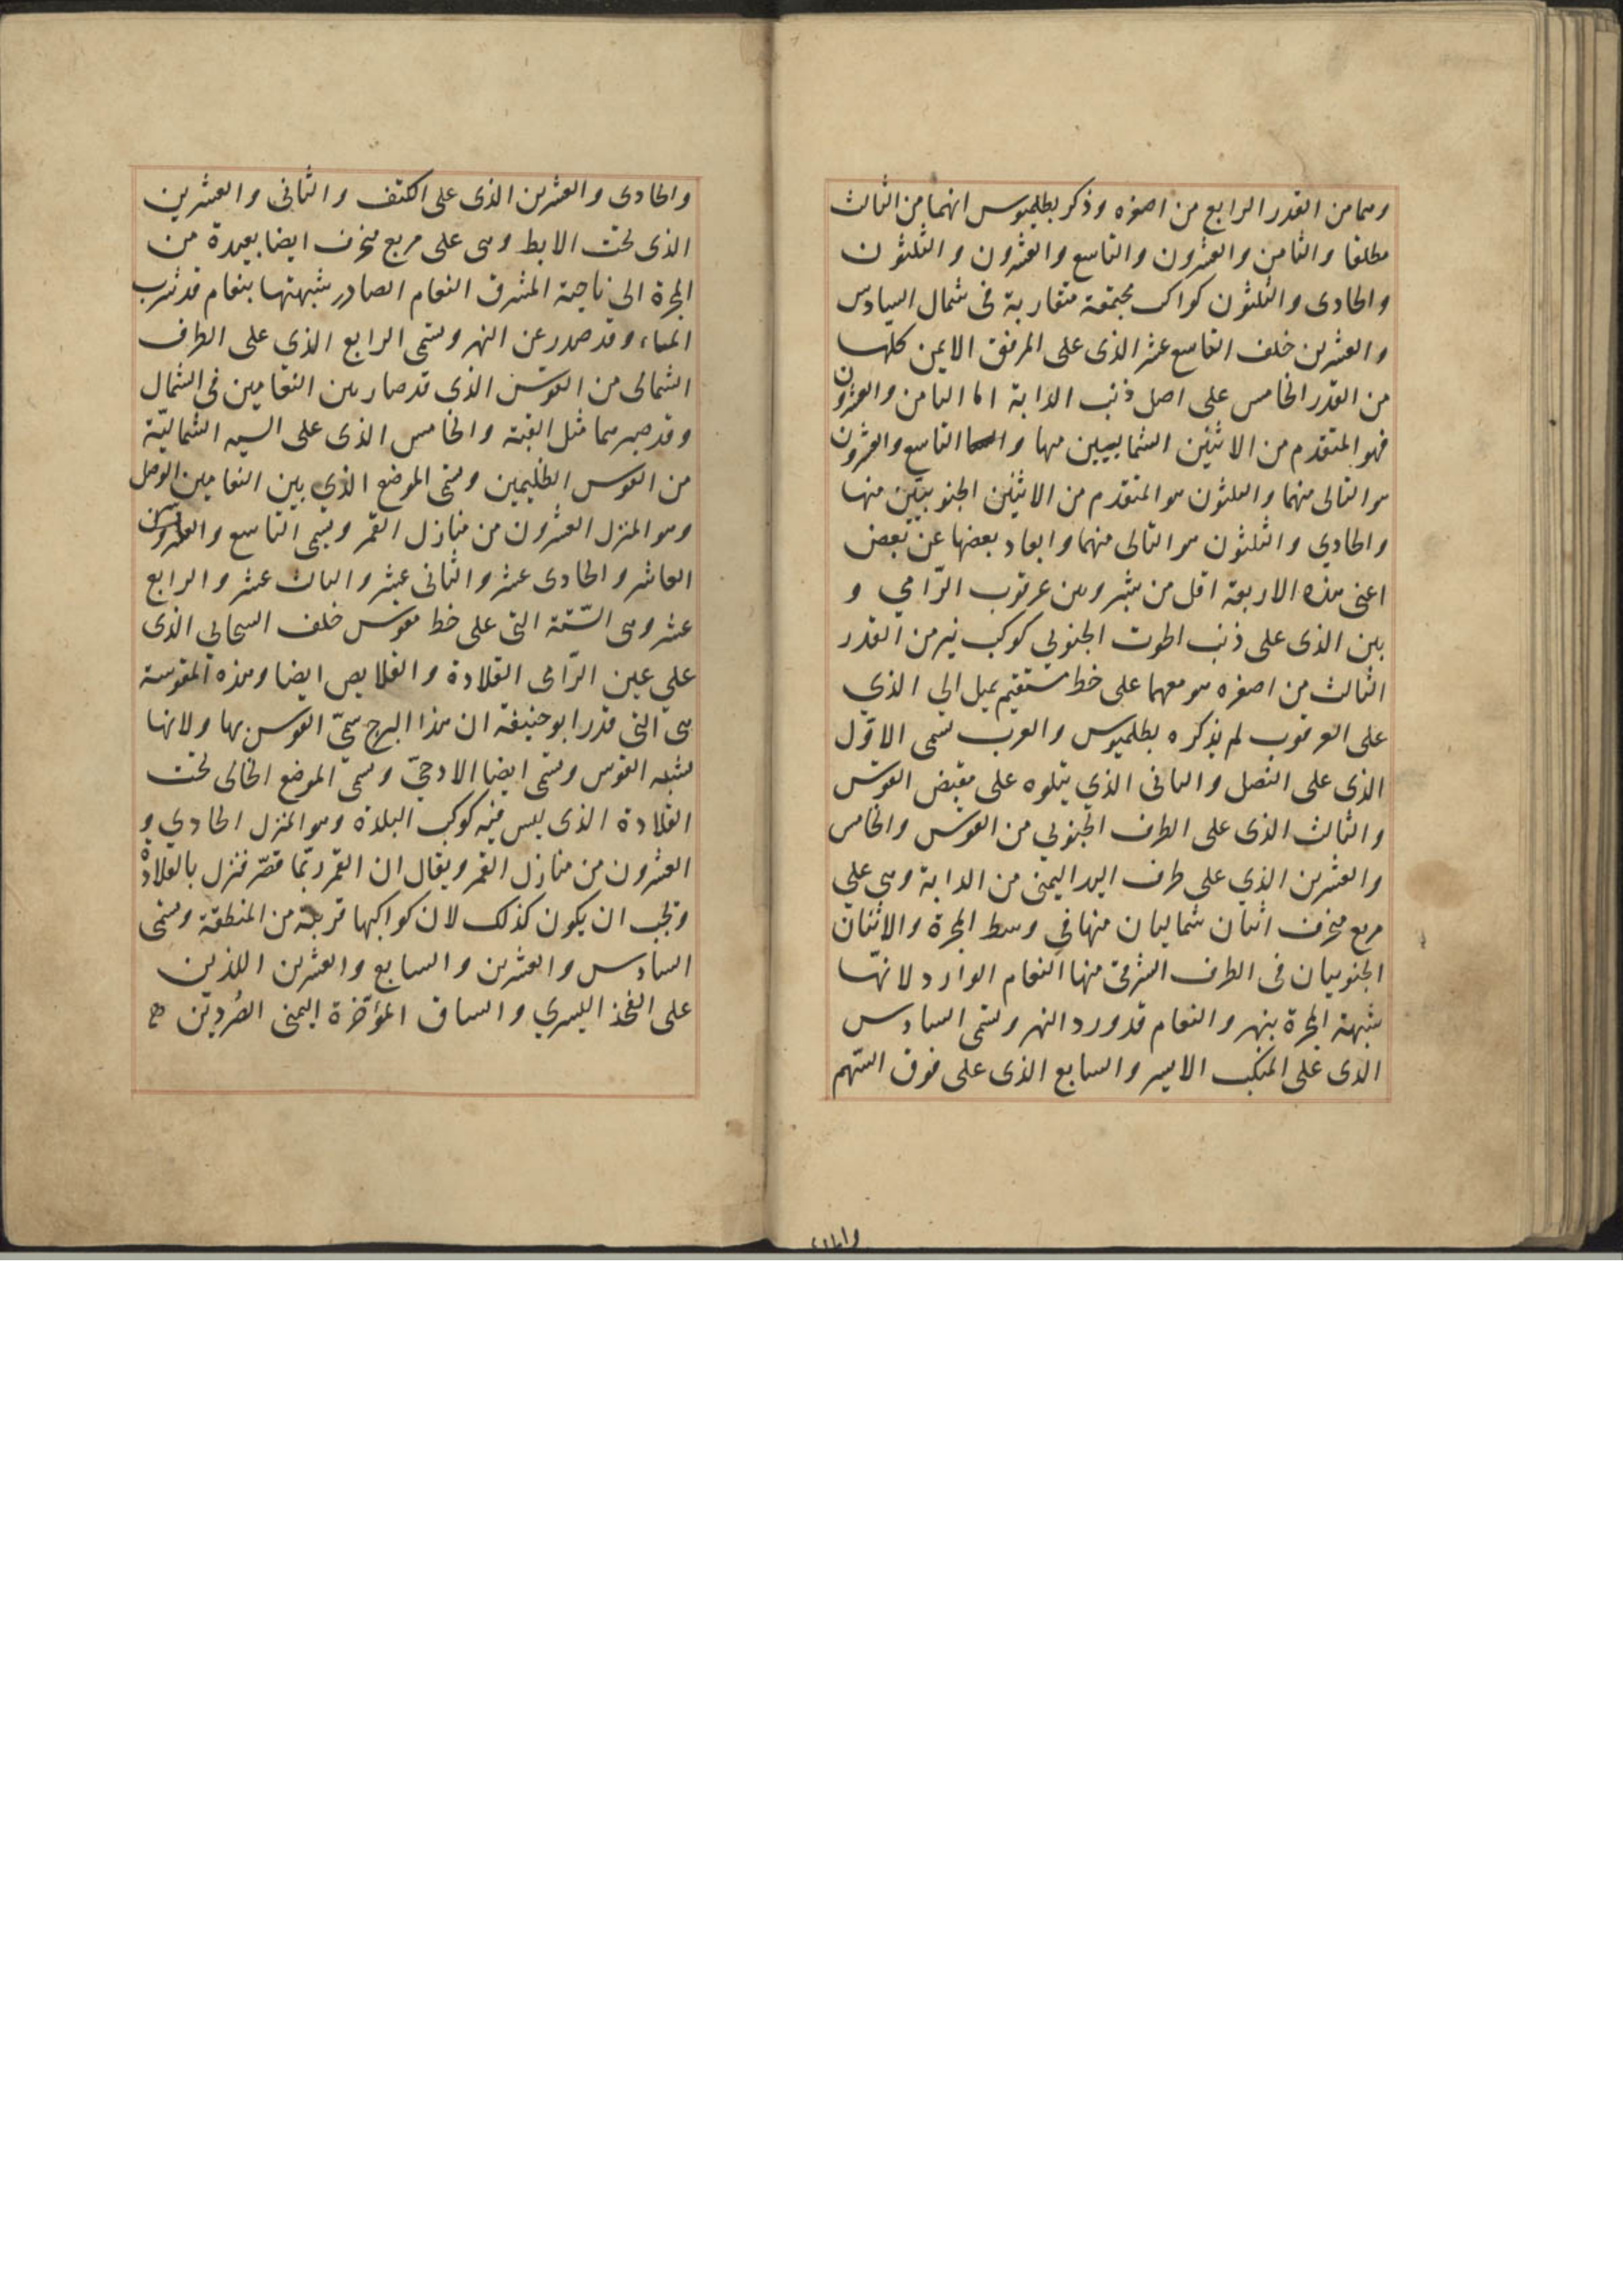 وهما من القدر الرابع من اصغره وذكر بطلميوس انهما من الثالث
مطلقا والثامن والعشرون والتاسع والعشرون والثلثون
والحادى والثلثون كواكب مجتمعة متقاربة فى شمال السادس
والعشرين خلف التاسع عشر الذى على المرفق الايمن كلها
من القدر الخامس على اصل ذنب الدابة اما الثامن والعشرون
فهو المتقدم من الاثنين الشماليين منها واما التاسع والعشرون
هو التالى منهما والثلثون هو المتقدم من الاثنين الجنوبيين منها
والحادي والثلثون هو التالى منهما وابعاد بعضها عن بعض
اعنى هذه الاربعة اقل من شبر وبين عرقوب الرّامي و
بين الذى على ذنب الحوت الجنوبي كوكب نير من القدر
الثالث من اصغره هو معهما على خط مستقيم يميل الى الذي
على العرقوب لم يذكره بطلميوس والعرب تسمى الاوّل
الذى على النصل والثانى الذي يتلوه على مقبض القوس
والثالث الذى على الطرف الجنوبي من القوس والخامس
والعشرين الذي على طرف اليد اليمنى من الدابة وهي علي
مربع منحرف اثنان شماليان منها في وسط المجرة والاثنان
الجنوبيان فى الطرف الشرقى منها النعام الوارد لانهّا
شبهت المجرة بنهر والنعام قد ورد النهر وتسمى السادس
الذى على المنكب الايسر والسابع الذى على فوق السّهم
والحادى والعشرين الذى على الكتف والثانى والعشرين
الذى تحت الابط وهى على مربع منحرف ايضا بعيدة من
المجرة الى ناحية المشرق النعام الصادر شبهتها بنعام قد شرب
الماء وقد صدر عن النهر وتسمى الرابع الذي على الطرف
الشمالى من القوس الذى قد صار بين النعامين فى الشمال
وقد صير هما مثل القبة والخامس الذى على السيه الشماليّة
من القوس الظليمين وتسمى الموضع الذي بين النعامين الوصل
وهو المنزل العشرون من منازل القمر وتسمى التاسع والعشرين
العاشر والحادى عشر والثانى عشر والثالث عشر والرابع
عشر وهى السّتة التى على خط مقوس خلف السحابي الذى
علي عين الرّامى القلادة والقلايص ايضا وهذه المقوسة
هى التى قدر ابو حنيفة ان هذا البرج سمىّ القوس بها ولانها
تشبه القوس وتسمى ايضا الادحيّ وتسمىّ الموضع الخالى تحت
القلادة الذى ليس فيه كوكب البلدة وهو المنزل الحادي و
العشرون من منازل القمر ويقال ان القمر ربّما قصّر فنزل بالقلادة
ويجب ان يكون كذلك لان كواكبها قريبة من المنطقة وتسمى
السادس والعشرين والسابع والعشرين اللذين
على الفخذ اليسري والساق المؤخّرة اليمنى الصُردين